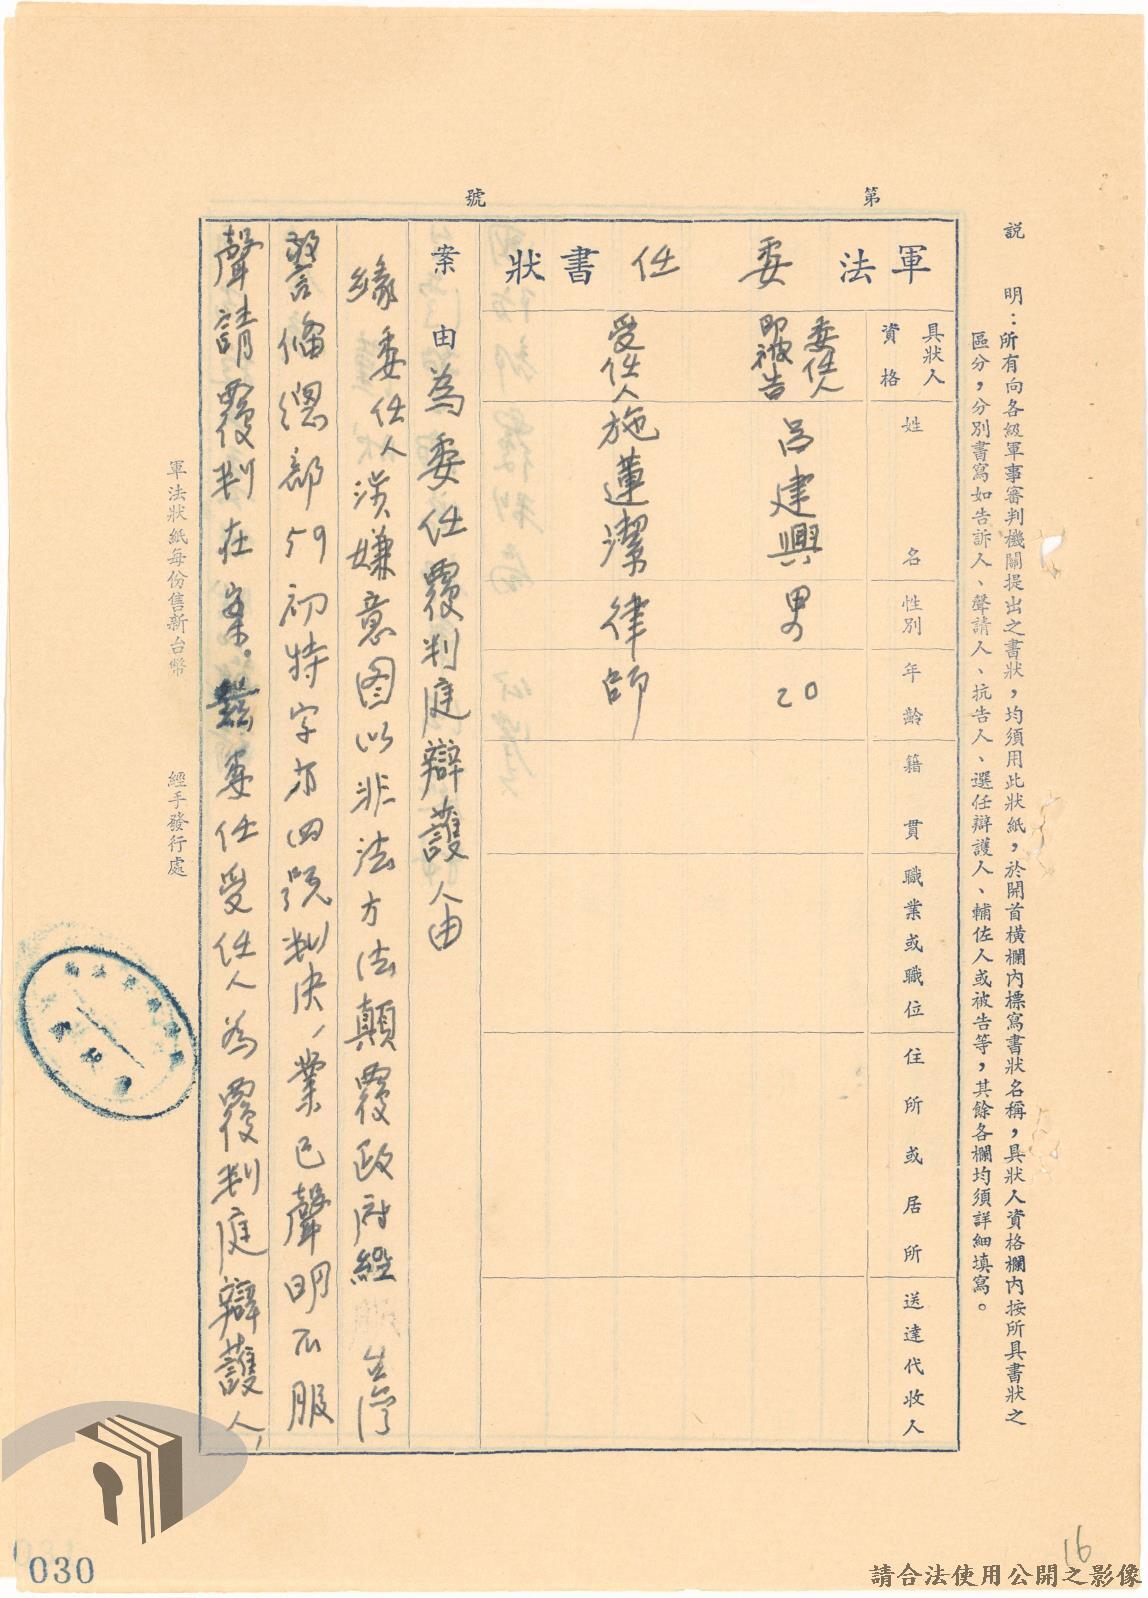 第　號
說　明：所有向各級軍事審判機關提出之書狀，均須用此狀紙，於開首橫欄內標寫書狀名稱，具狀人資格欄內按所具書狀之
區分，分別書寫如告訴人、聲請人、抗告人、選任辯護人、輔佐人或被告等，其餘各欄均須詳細填寫。
軍法委任書狀
具狀人
資格
姓名
性別
年齡
籍貫
職業或職位
住所或居所
送達代收人
委任人
即被告
呂建興 男 20
受任人 施蓮潔律師
案由 為委任覆判庭辯護人由
緣委任人涉嫌意图以非法方法顛覆政府經 台灣
警俻總部59初特字才四號判決、業已聲明不服
聲請覆判在案。茲委任受任人為覆判庭辯護人，
軍法狀紙每份售新台幣
經手發行處
030
16
請合法使用公開之影像